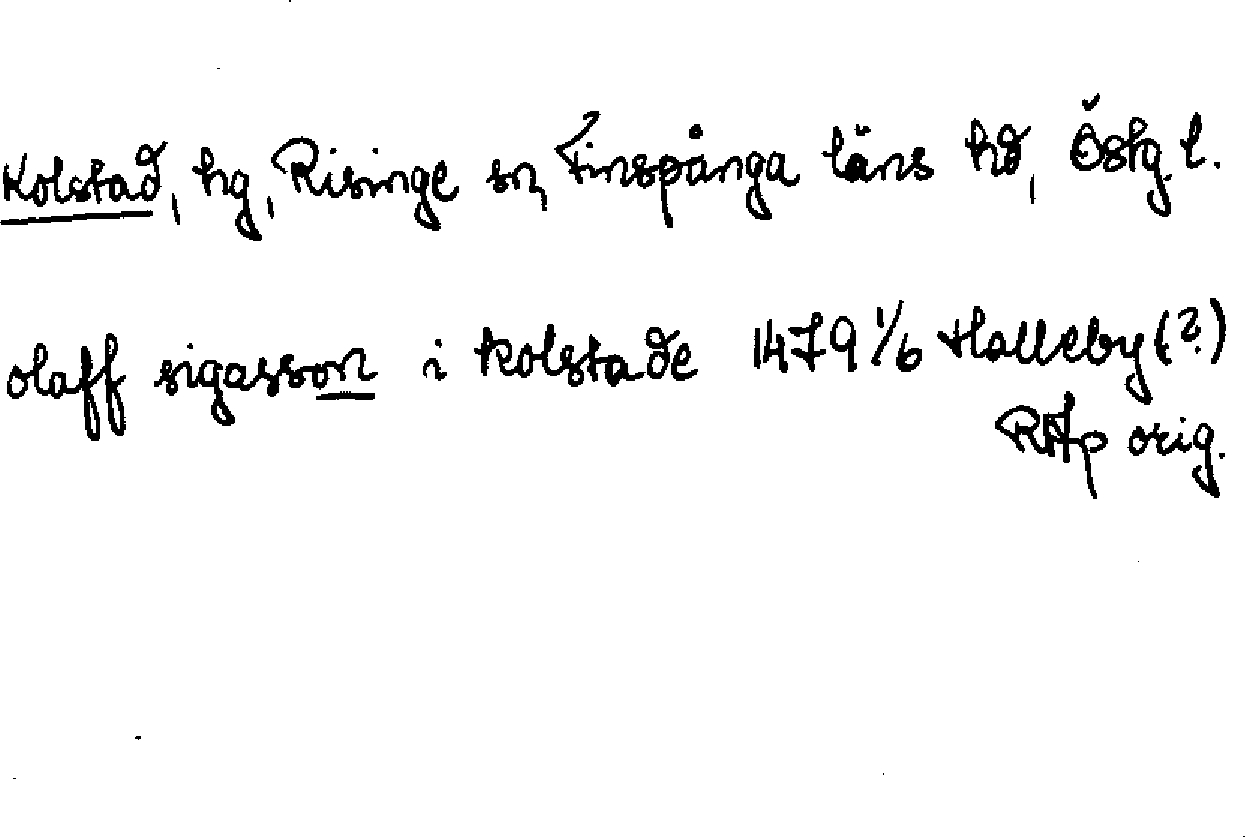 Kolstad, hg, Risinge sn, Finspånga läns hd, Östg. l.
olaff sigasson i kolstade 1479 1/6 Halleby (?)
RAp orig.